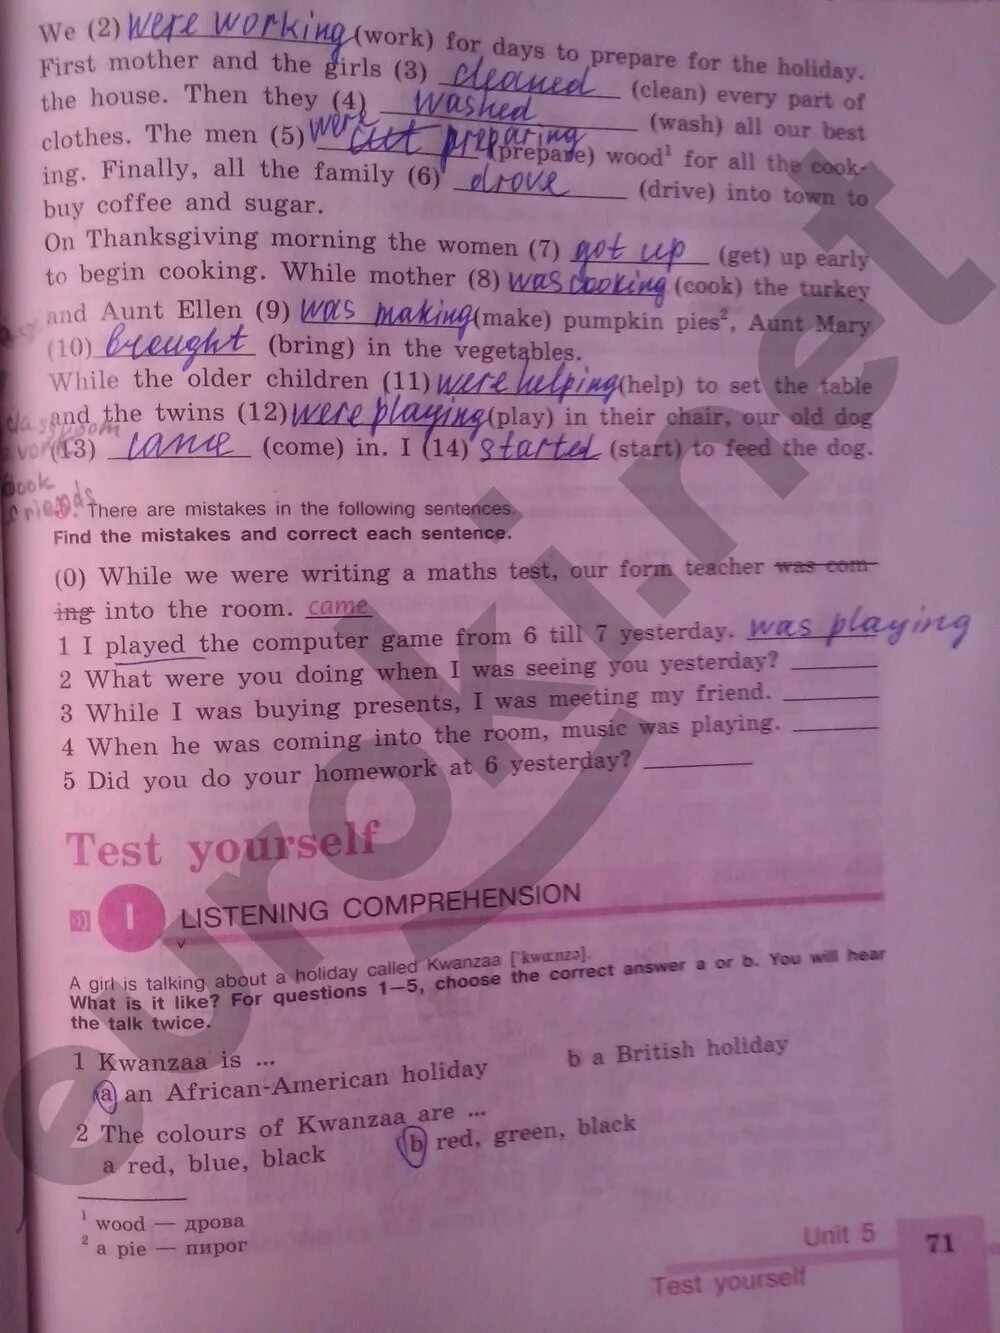 We (2) were working (work) for days to prepare for the holiday.
First mother and the girls (3) cleaned (clean) every part of
the house. Then they (4) washed (wash) all our best
clothes. The men (5) were preparing (prepare) wood¹ for all the cook-
ing. Finally, all the family (6) drove (drive) into town to
buy coffee and sugar.
On Thanksgiving morning the women (7) got up (get) up early
to begin cooking. While mother (8) was cooking (cook) the turkey
and Aunt Ellen (9) was making (make) pumpkin pies², Aunt Mary
(10) brought (bring) in the vegetables.
While the older children (11) were helping (help) to set the table
and the twins (12) were playing (play) in their chair, our old dog
(13) came (come) in. I (14) started (start) to feed the dog.
classroom
book
friends
There are mistakes in the following sentences.
Find the mistakes and correct each sentence.
(0) While we were writing a maths test, our form teacher was com-
ing into the room. came
1 I played the computer game from 6 till 7 yesterday. was playing
2 What were you doing when I was seeing you yesterday?
3 While I was buying presents, I was meeting my friend.
4 When he was coming into the room, music was playing.
5 Did you do your homework at 6 yesterday?
Test yourself
I LISTENING COMPREHENSION
A girl is talking about a holiday called Kwanzaa [ˈkwɑnzə].
What is it like? For questions 1—5, choose the correct answer a or b. You will hear
the talk twice.
1 Kwanzaa is ...
a an African-American holiday b a British holiday
2 The colours of Kwanzaa are ...
a red, blue, black b red, green, black
¹ wood — дрова
² a pie — пирог
Unit 5 71
Test yourself
euroki.net